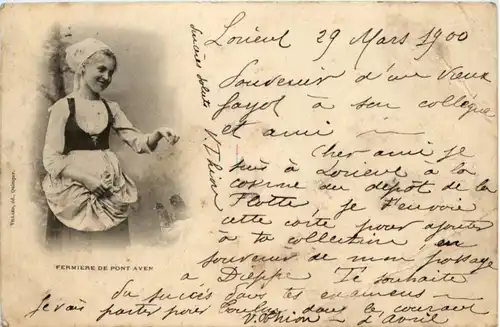 Lorient 29 Mars 1900
Souvenir d'un vieux
fayot à son collègue
et ami
Cher ami je
suis à Lorient à la
caserne du dépôt de la
Flotte, je t'envoie
cette carte pour ajouter
à ta collection, en
souvenir de mon passage
à Dieppe Je souhaite
du succès dans tes examens
je vais partir pour Toulon dans le courant
d'avril
Sincères saluts
FERMIÈRE DE PONT AVEN